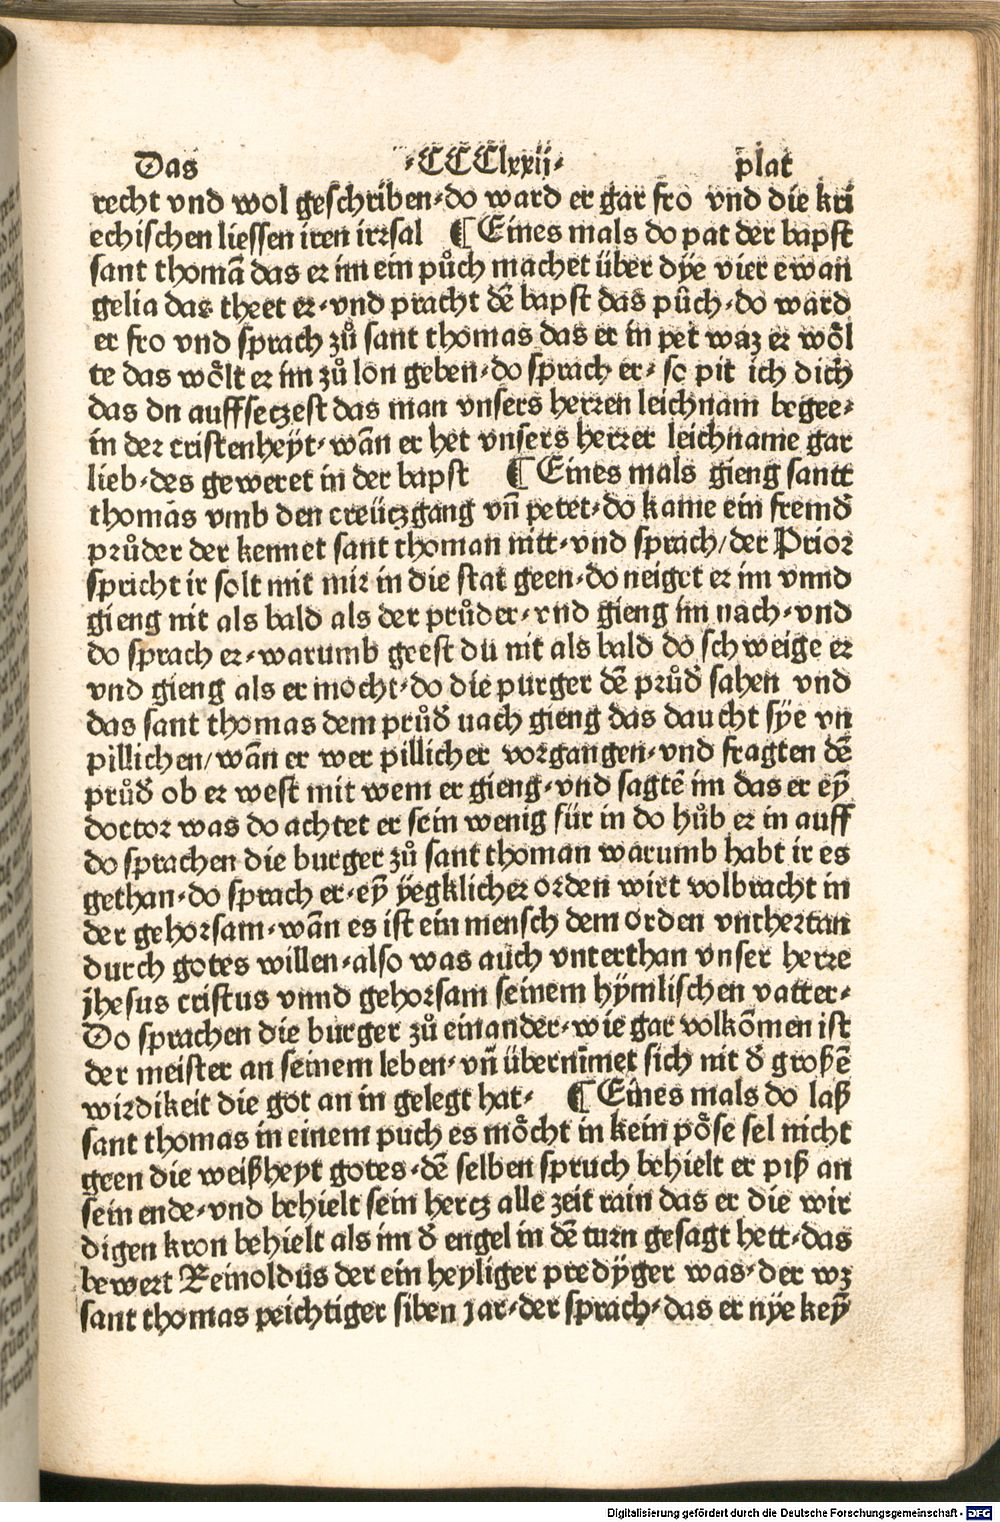 Das ·CCClxxij· plat
recht vnd wol geschriben·do ward er gar fro vnd die kri
echischen liessen iren irrsal ¶ Eines mals do pat der bapst
sant thomā das er im ein půch machet über dÿe vier ewan
gelia das theet er·vnd pracht dē bapst das půch·do ward
er fro vnd sprach zů sant thomas das er in pet waz er wöl
te das wölt er im zů lon geben·do sprach er· so pit ich dich
das dn auffseczest das man vnsers herren leichnam begee·
in der cristenheÿt·wān er het vnsers herrer leichname gar
lieb·des geweret in der bapst ¶ Eines mals gieng santt
thomās vmb den creüczgang vn̄ petet·do kame ein fremd̄
průder der kennet sant thoman nitt·vnd sprach/der Prior
spricht ir solt mit mir in die stat geen·do neiget er im vnnd
gieng nit als bald als der průder·vnd gieng im nach·vnd
do sprach er·warumb geest du nit als bald do schweige er
vnd gieng als er mocht·do die purger dē průd̄ sahen vnd
das sant thomas dem průd̄ nach gieng das daucht sÿe vn
pillichen/wān er wer pillicher vorgangen·vnd fragten dē
průd̄ ob er west mit wem er gieng·vnd sagtē im das er eÿ̄
doctor was do achtet er sein wenig für in do hůb er in auff
do sprachen die burger zů sant thoman warumb habt ir es
gethan·do sprach er·eÿ̄ ÿegklicher orden wirt volbracht in
der gehorsam·wān es ist ein mensch dem orden vnthertan
durch gotes willen·also was auch vnterthan vnser herre
jhesus cristus vnnd gehorsam seinem hÿmlischen vatter·
Do sprachen die burger zů einander·wie gar volkōmen ist
der meister an seinem leben·vn̄ übernīmet sich nit d̄ großē
wirdikeit die got an in gelegt hat· ¶ Eines mals do laß
sant thomas in einem puch es möcht in kein pöse sel nicht
geen die weißheyt gotes·dē selben spruch behielt er piß an
sein ende·vnd behielt sein hercz alle zeit rain das er die wir
digen kron behielt als im d̄ engel in dē turn gesagt hett·das
bewert Reinoldus der ein heyliger predÿger was·der wz
sant thomas peichtiger siben jar·der sprach·das er nÿe keÿ̄
Digitalisierung gefördert durch die Deutsche Forschungsgemeinschaft - DFG